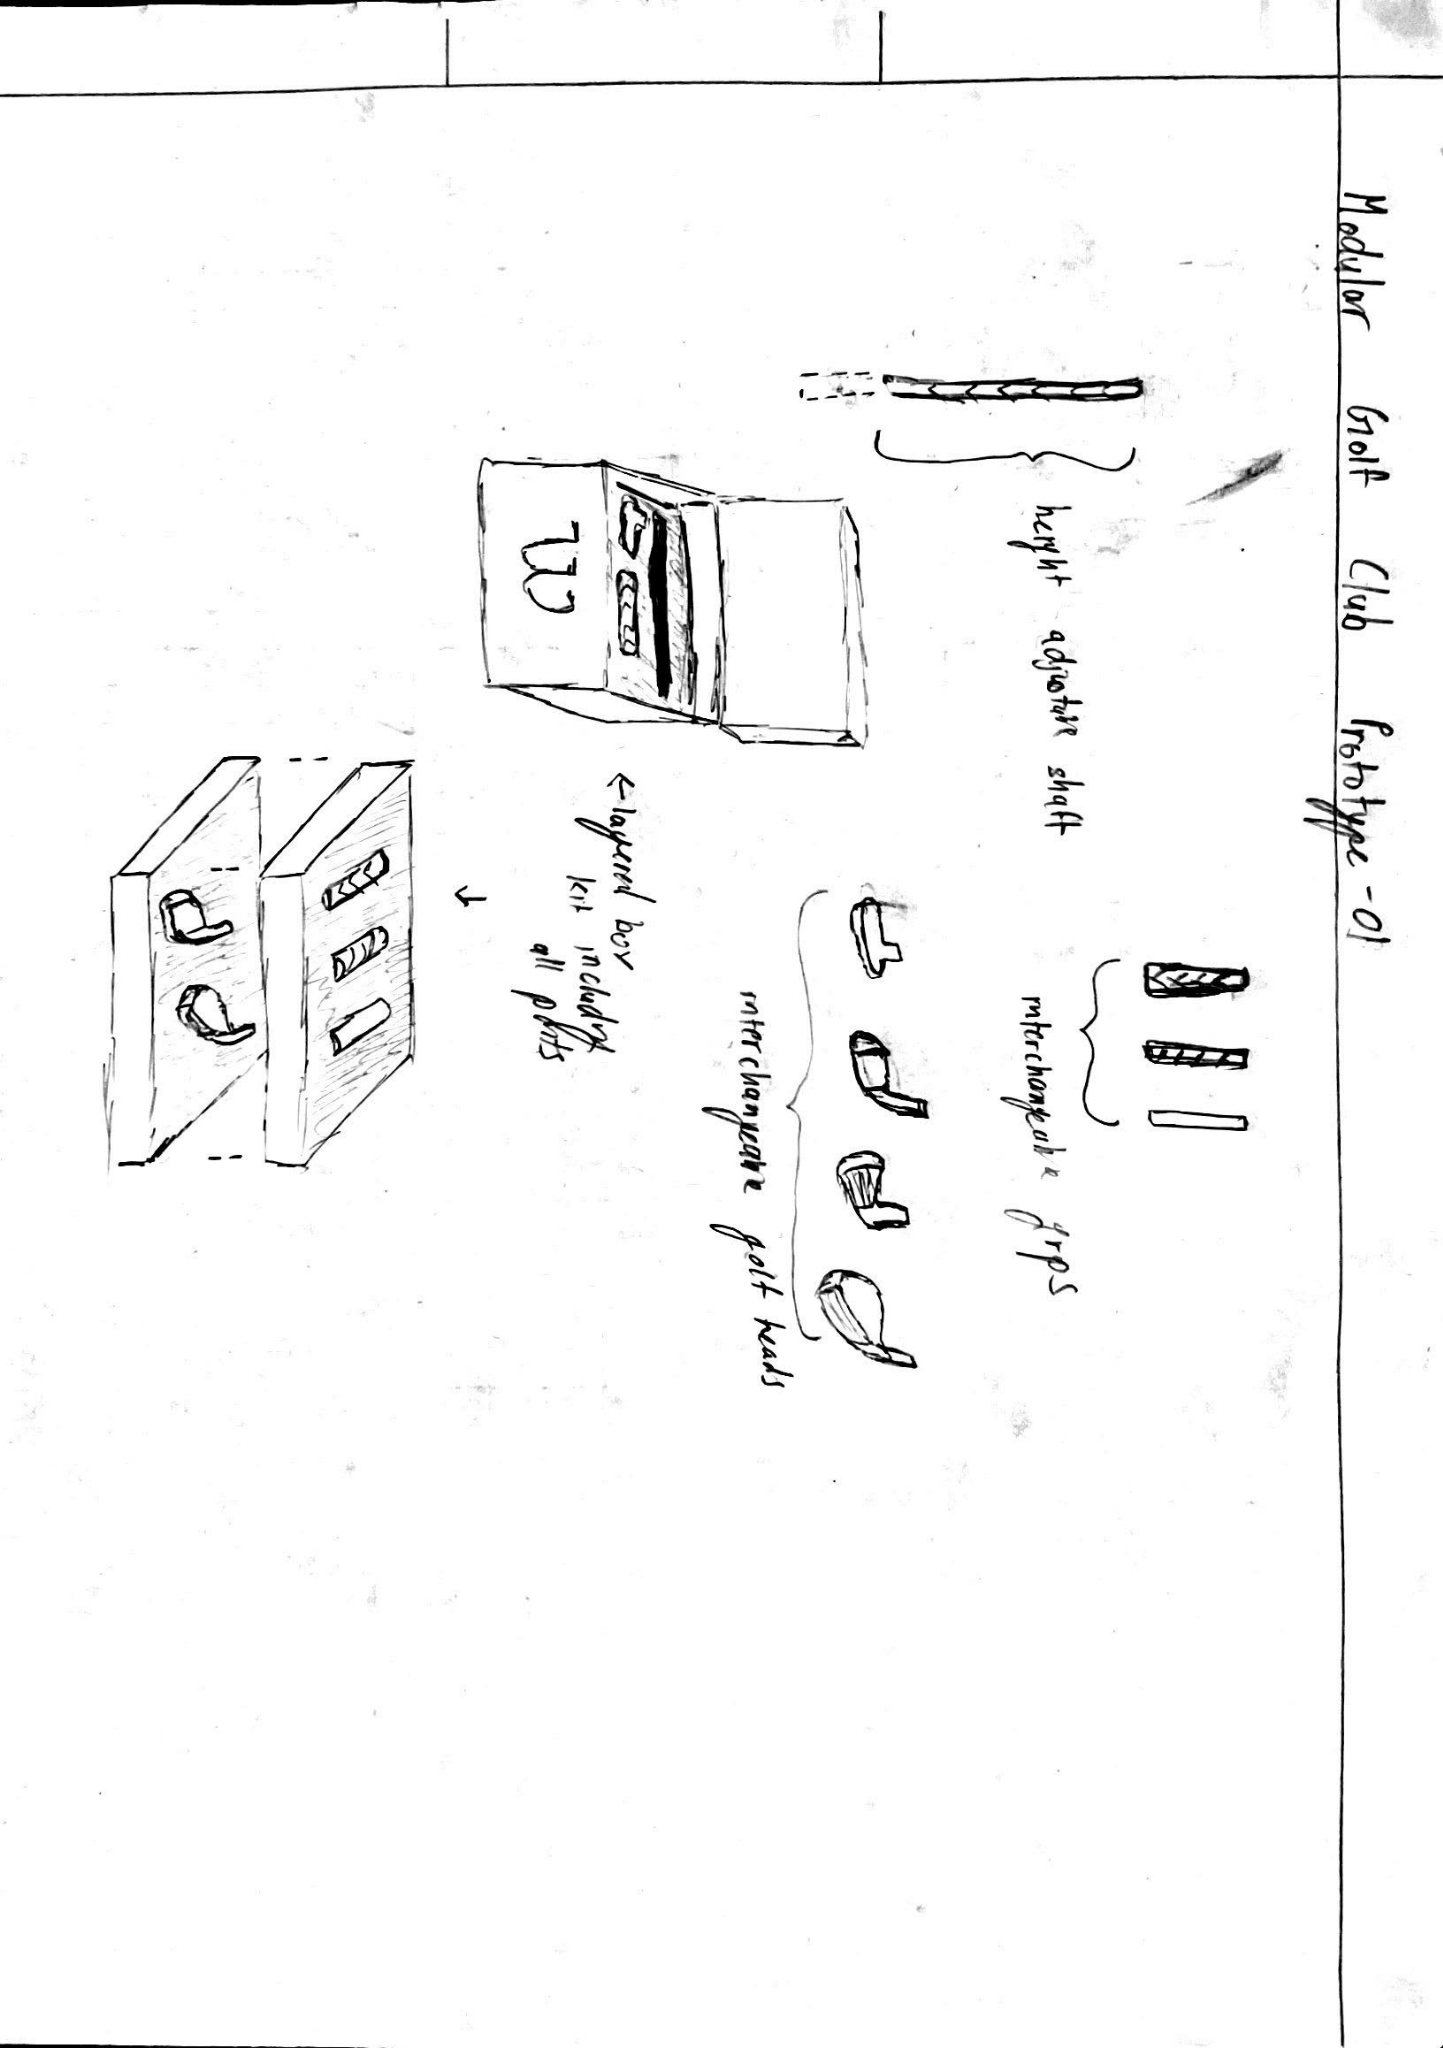 Modular Golf Club Prototype-01
height adjustable shaft
interchangeable grps
interchangeable golf heads
←layered box
kit including
all parts